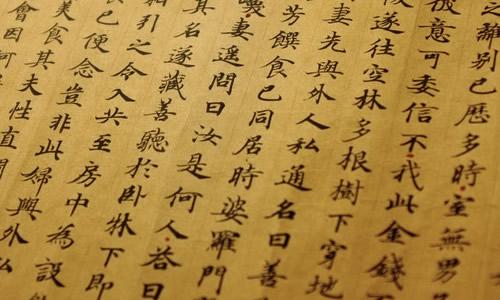 之離別已歷多時室無男
意可委信不我此金錢不
遂往空林多根樹下穿地
妻先與外人私通名曰善
芳饌食已同居時婆羅門
妻遙問曰汝是何人答曰
其名遂藏善聽於卧牀下即
引之令入共至房中為設
已便念豈非此婦與外私
美食其夫性直
會因何